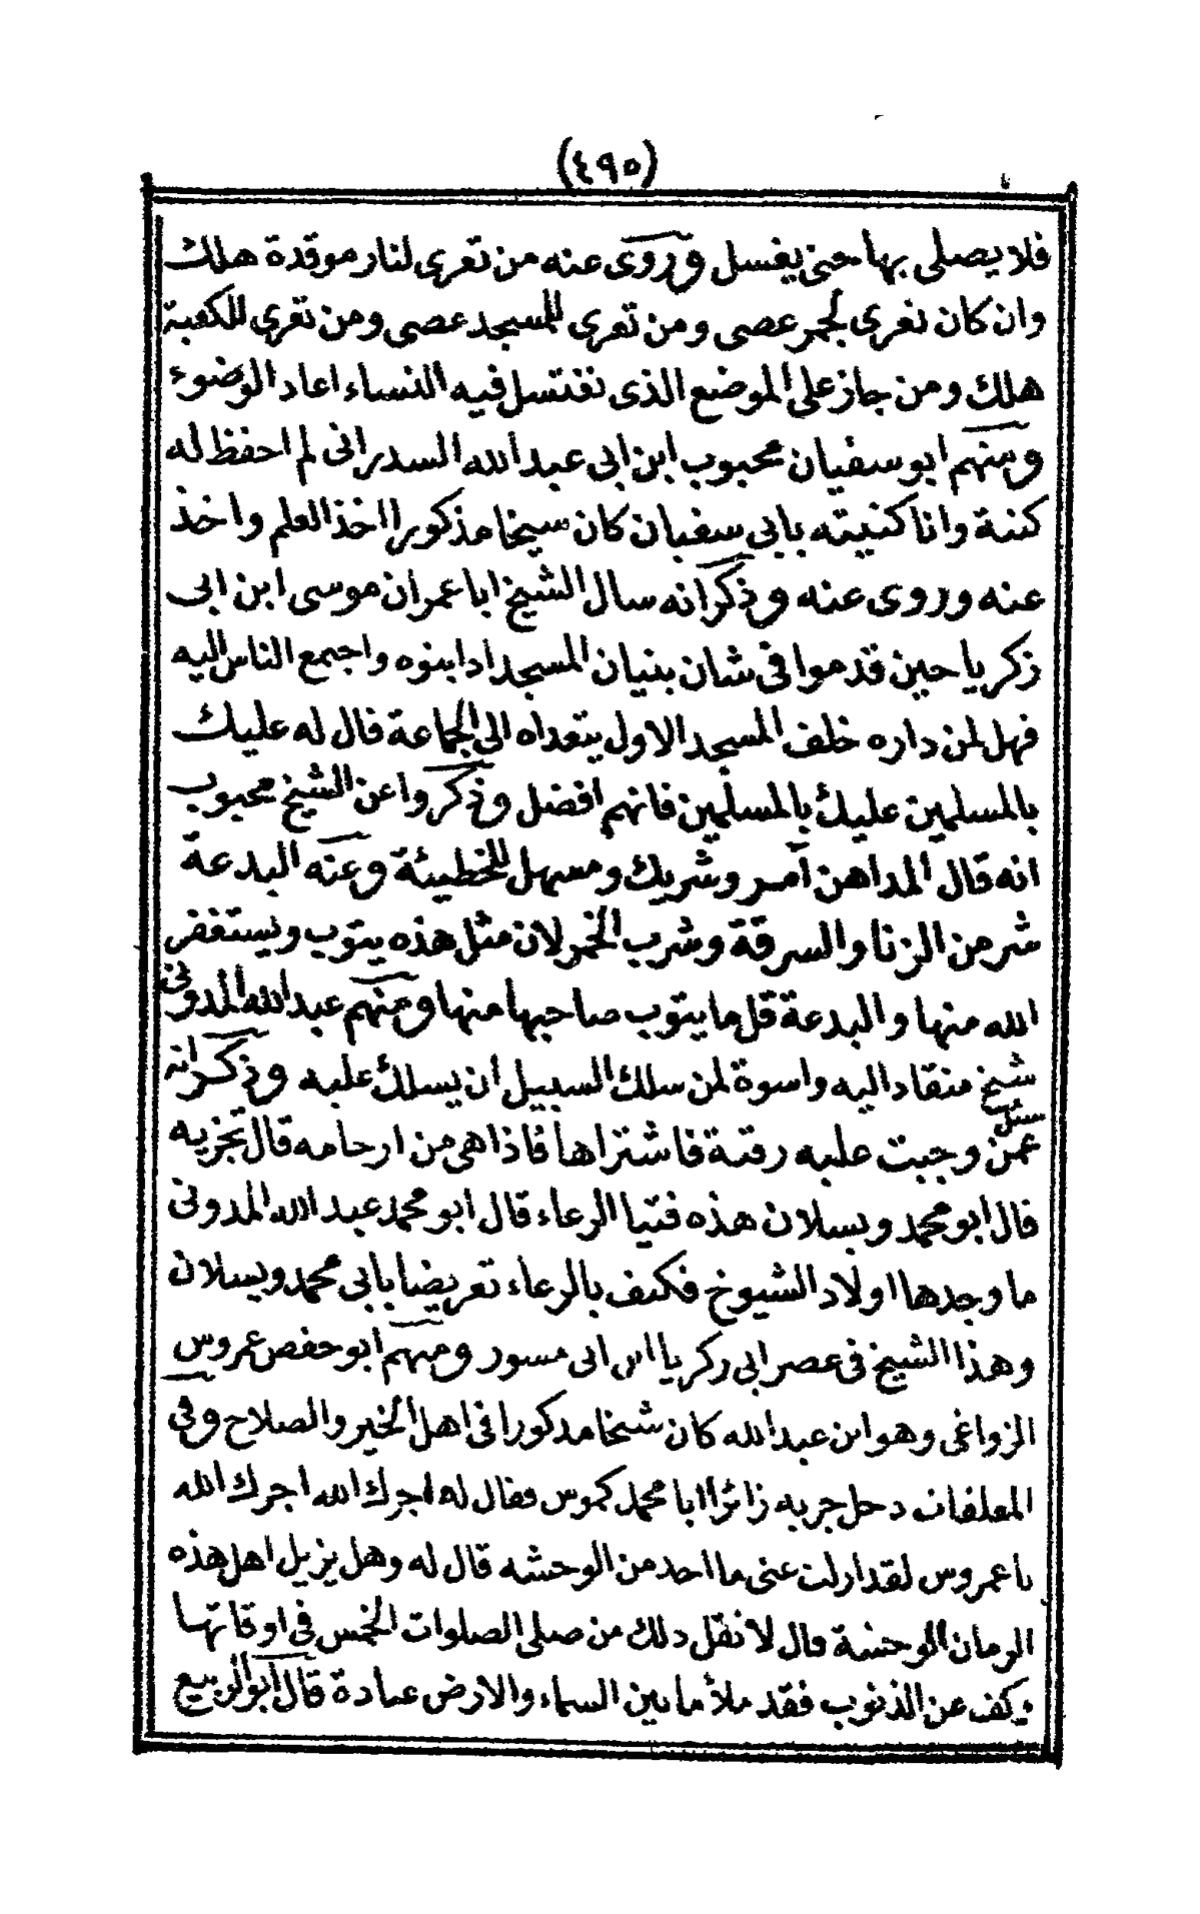 (٤٩٥)
فلا يصلى بها حتى يغسل وروى عنه من تعرى لنار موقدة هلك
وان كان تعرى لجمر عصى ومن تعرى للمسجد عصى ومن تعرى للكعبة
هلك ومن جاز على الموضع الذى تغتسل فيه النساء اعاد الوضوء
ومنهم ابو سفيان محبوب ابن ابى عبد الله السدرانى لم احفظ له
كنية وانا كنيته بابى سفيان كان شيخا مذكورا اخذ العلم واخذ
عنه وروى عنه وذكر انه سال الشيخ ابا عمران موسى ابن ابى
زكريا حين قدموا فى شان بنيان المسجد اذا بنوه واجتمع الناس اليه
فهل لمن داره خلف المسجد الاول يتعداه الى الجماعة قال له عليك
بالمسلمين عليك بالمسلمين فانهم افضل وذكروا عن الشيخ محبوب
انه قال المداهن آمر وشريك ومسهل للخطيئة وعنه البدعة
شر من الزنا والسرقة وشرب الخمر لان مثل هذه يتوب ويستغفر
الله منها والبدعة قل ما يتوب صاحبها منها ومنهم عبد الله المدونى
شيخ منقاد اليه واسوة لمن سلك السبيل ان يسلك عليه وذكر انه
سئل
عمن وجبت عليه رقبة فاشتراها فاذا هى من ارحامه قال تجزيه
قال ابو محمد ويسلان هذه فتيا الرعاء قال ابو محمد عبد الله المدونى
ما وجدها اولاد الشيوخ فكيف بالرعاء تعريضا بابى محمد ويسلان
وهذا الشيخ فى عصر ابى زكريا ابن ابى مسور ومنهم ابو حفص عمروس
الزواغى وهو ابن عبد الله كان شيخا مذكورا فى اهل الخير والصلاح وفى
المعلقات دخل جربه زائرا ابا محمد كموس فقال له اجرك الله اجرك الله
يا عمروس لقد ازلت عنى ما احد من الوحشه قال له وهل يزيل اهل هذه
الزمان الوحشة قال لا تقل ذلك من صلى الصلوات الخمس فى اوقاتها
وكف عن الذنوب فقد ملأ ما بين السماء والارض عبادة قال ابو الربيع